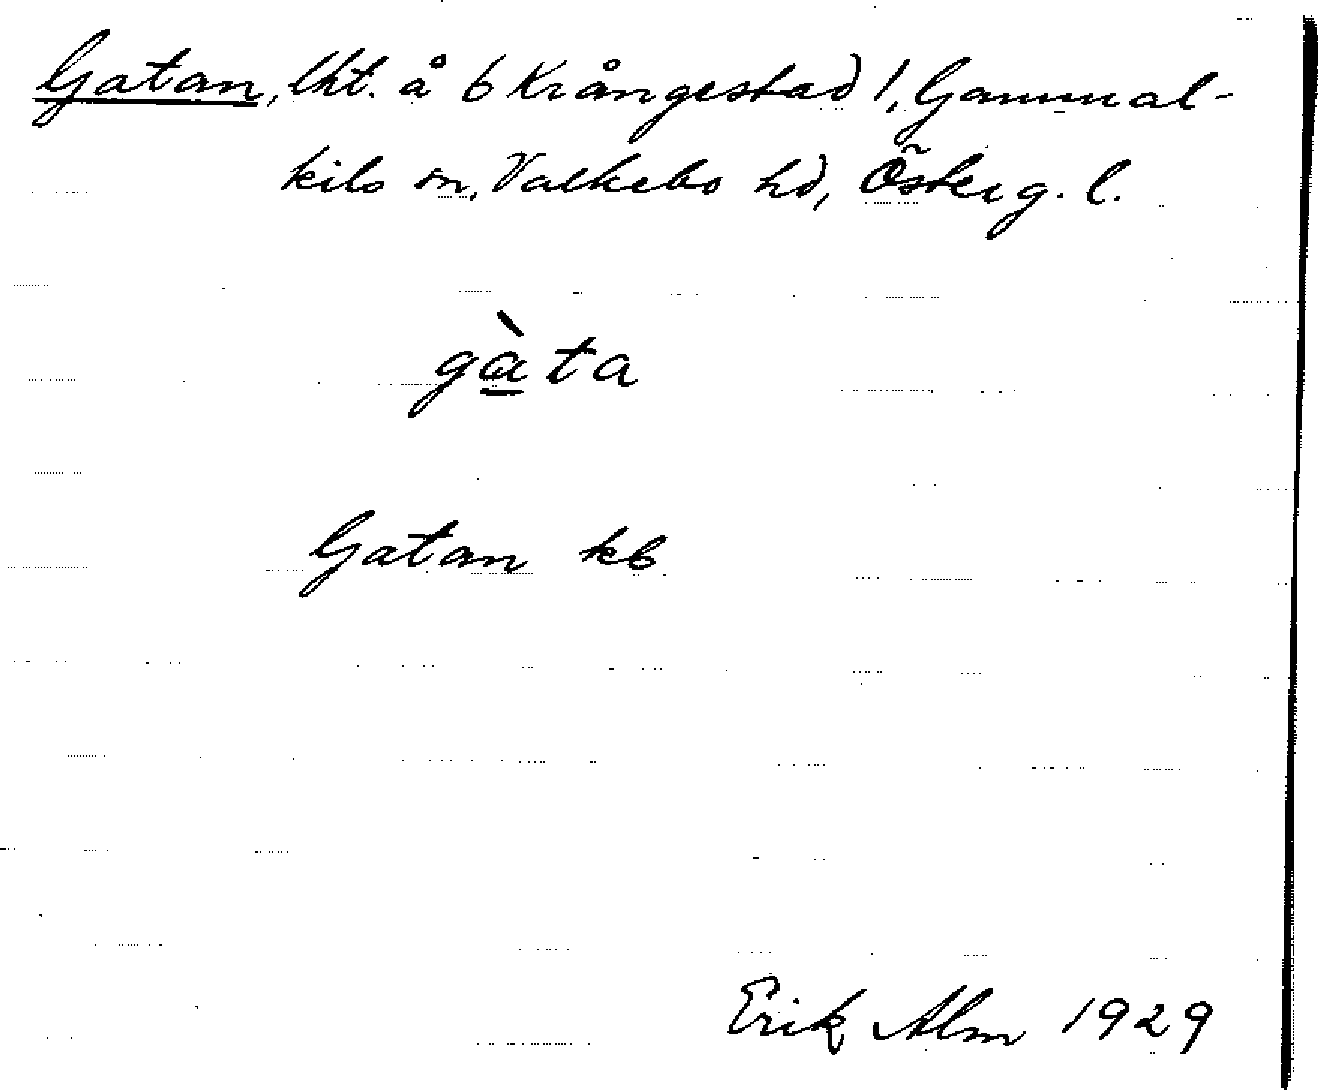 Gatan, lht. å b Krångestad 1, Gammal-
kils sn, Valkebo hd, Österg. l.
gàta
Gatan kb
Erik Alm 1929